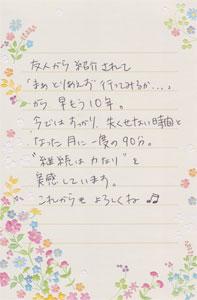 友人から紹介されて
「まぁとりあえず行ってみるか…」
から早もう10年。
今ではすっかり、失くせない時間と
なった月に一度の90分。
"継続は力なり"を
実感しています。
これからもよろしくね♫